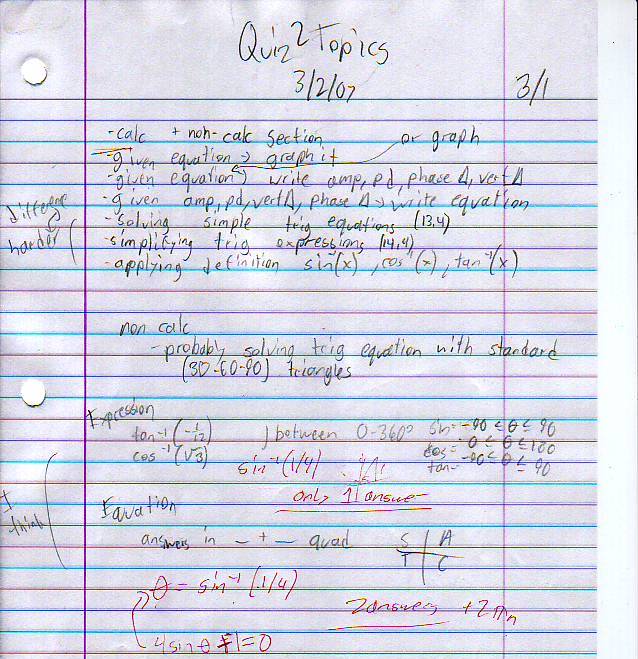 Quiz 2 Topics
3/2/07
3/1
-calc + non-calc section or graph
-given equation → graph it
-given equation → write amp, pd, phase Δ, vert Δ
-given amp, pd, vert Δ, phase Δ → write equation
-solving simple trig equations (13.4)
-simplifying trig expressions (14.4)
-applying definition sin⁻¹(x), cos⁻¹(x), tan⁻¹(x)
difference
harder
non calc
-probably solving trig equation with standard
(30-60-90) triangles
Expression
tan⁻¹(-1/√2) } between 0-360° sin= -90 ≤ θ ≤ 90
cos⁻¹(√3) cos= 0 ≤ θ ≤ 180
sin⁻¹(1/4) tan= -90 ≤ θ ≤ 90
only 1 answer
I
think
Equation
answers in _ + _ quad S A
T C
θ = sin⁻¹(1/4)
2 answers + 2πn
4sinθ -1=0